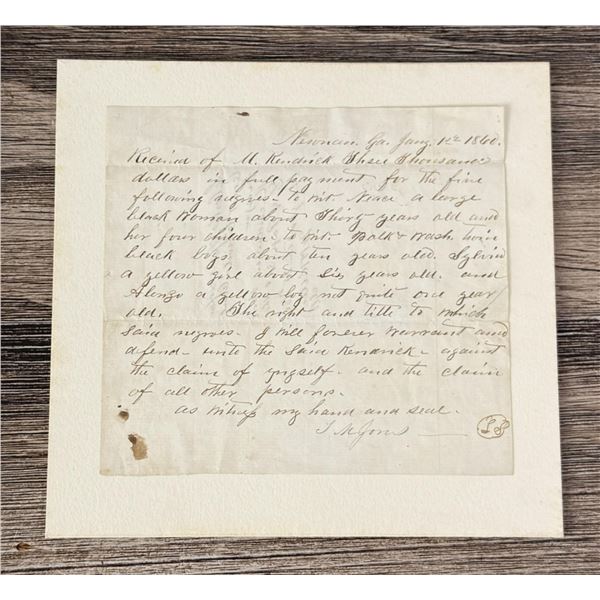 Newnan Ga. Jany. 1st 1860.
Received of M. Kendrick Three Thousand
dollars in full payment for the five
following negroes - to wit. a large
black woman about Thirty years old and
her four children - to wit. Polk & Wash. twin
black boys about ten years old. Sylvia
a yellow girl about Six years old. and
Alonzo a yellow boy not quite one year
old. The right and title to which
Said negroes. I will forever warrant and
defend - unto the Said Kendrick - against
the claim of myself. and the claim
of all other persons.
as witness my hand and seal.
Jones
L S